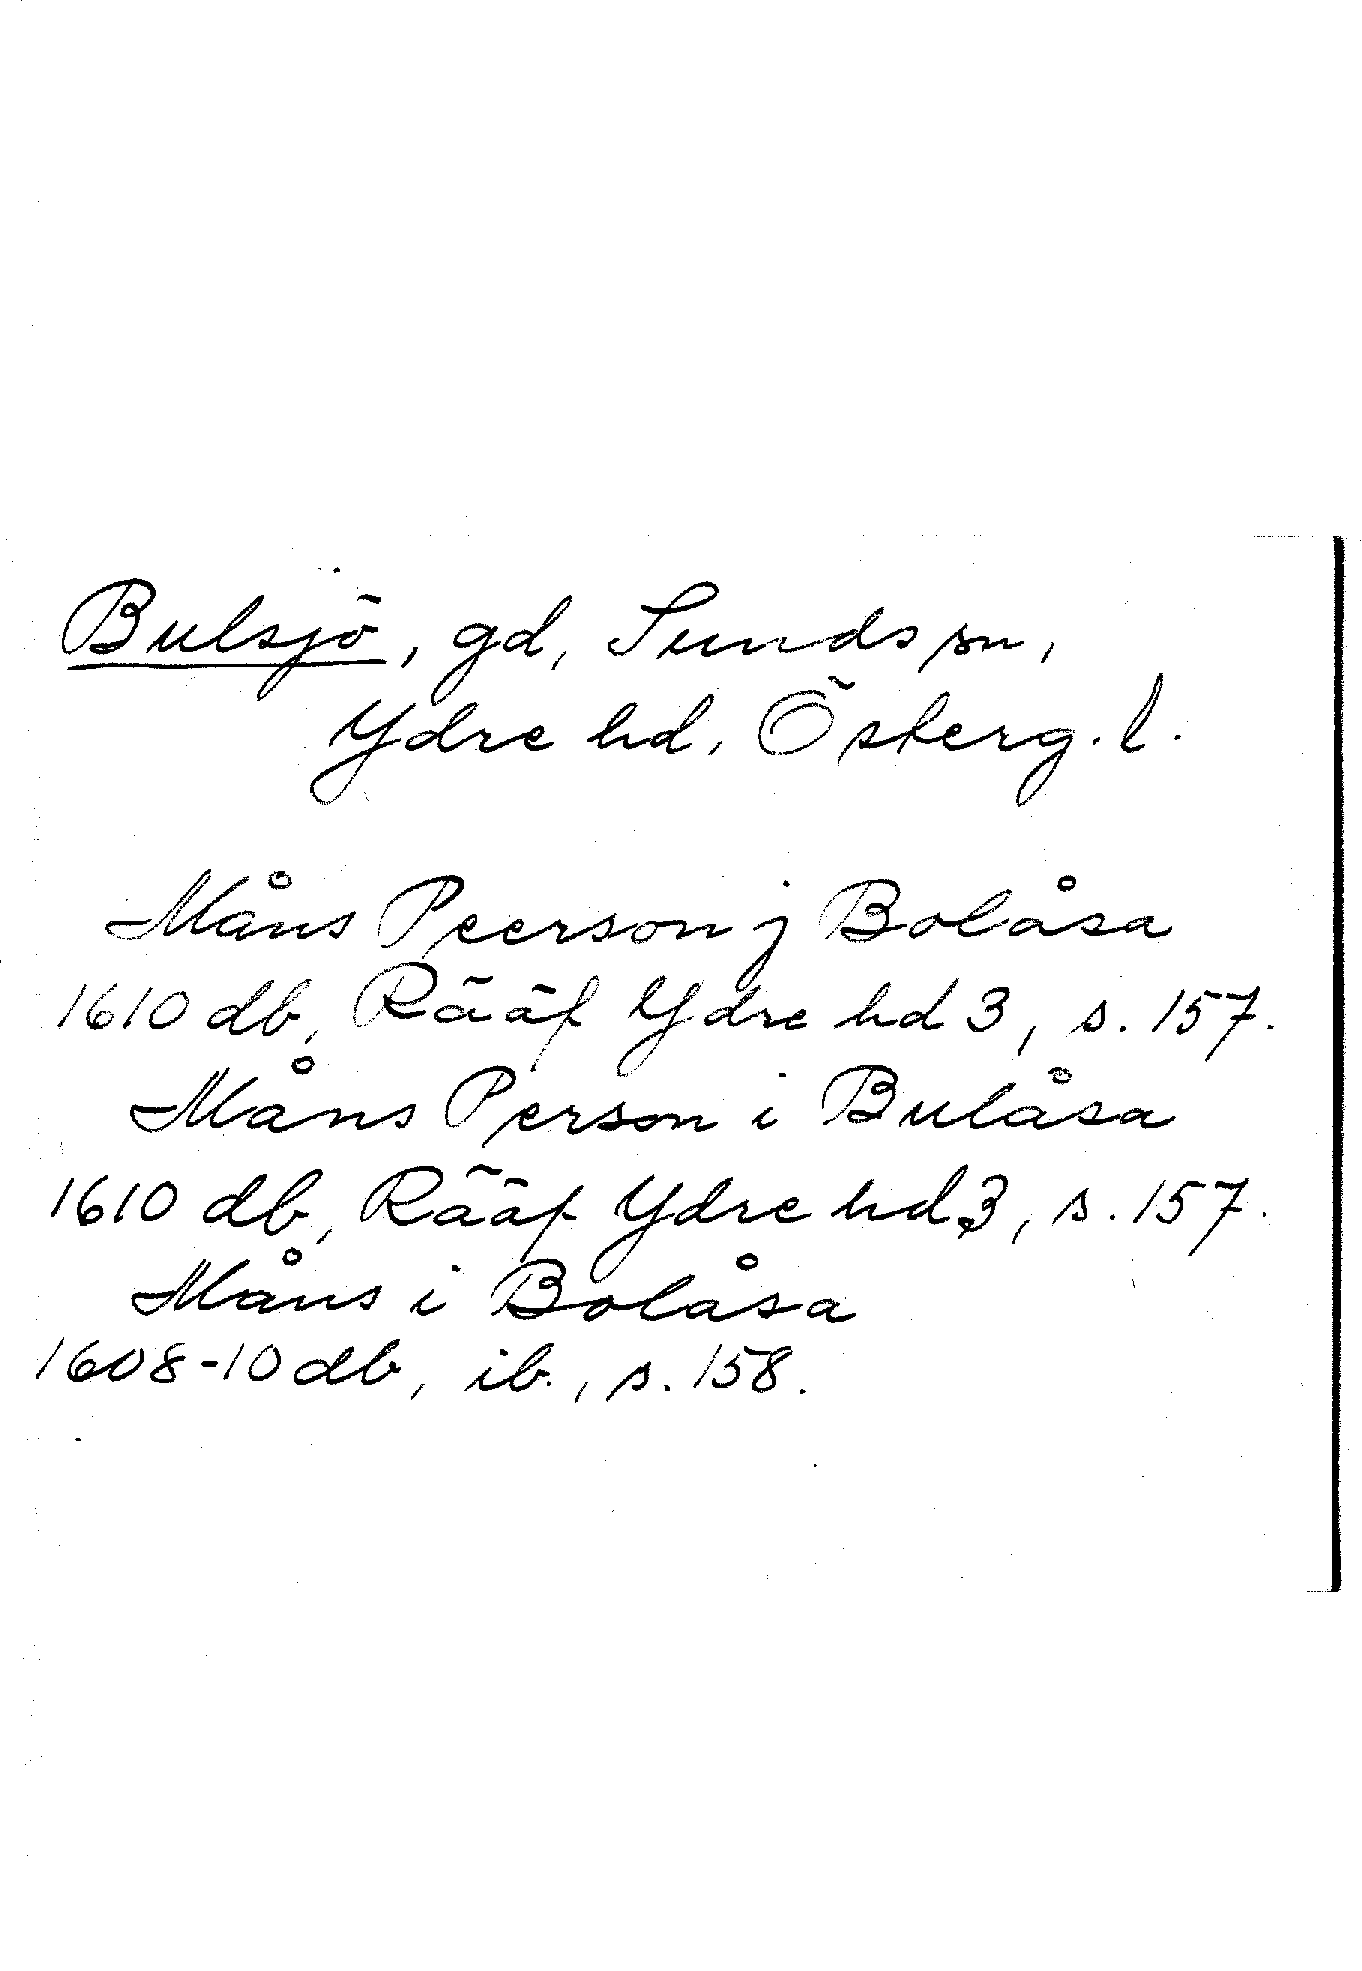 Bulsjö, gd, Sunds sn,
Ydre hd, Österg. l.
Måns Peerson j Bolåsa
1610 db, Rääf Ydre hd 3, s. 157.
Måns Person i Bulåsa
1610 db, Rääf Ydre hd 3, s. 157.
Måns i Bolåsa
1608-10 db, ib., s. 158.